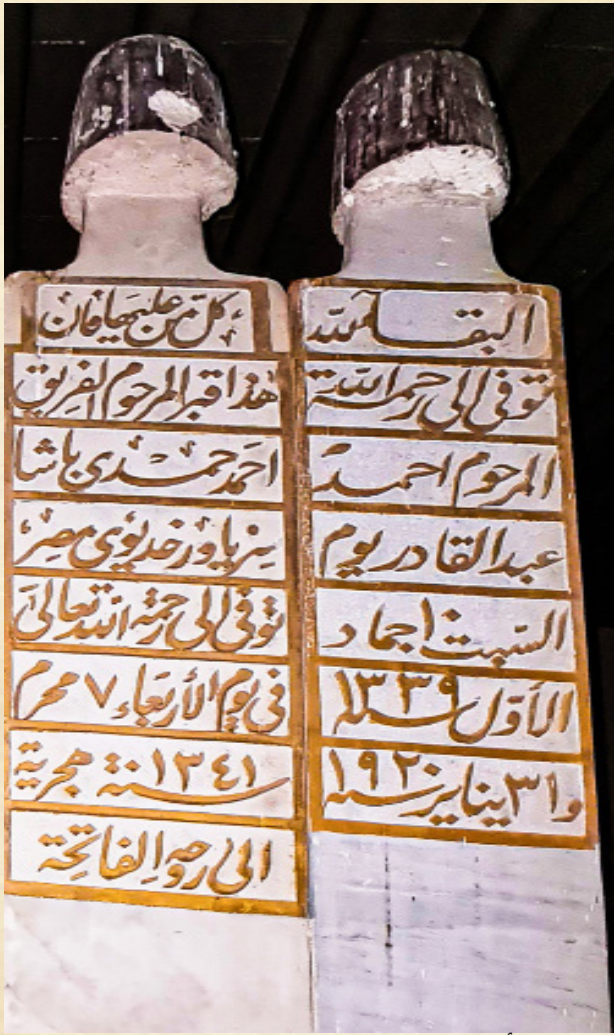 البقاء لله
توفى الى رحمة الله
المرحوم احمد
عبد القادر يوم
السبت ١٠ جماد
الأول سنة ١٣٣٩
و٣١ يناير سنة ١٩٢٠
كل من عليها فان
هذا قبر المرحوم الفريق
احمد حمدى باشا
سرياور خديوى مصر
توفى الى رحمة الله تعالى
فى يوم الأربعاء ٧ محرم
سنة ١٣٤١ هجرية
الى روحه الفاتحة